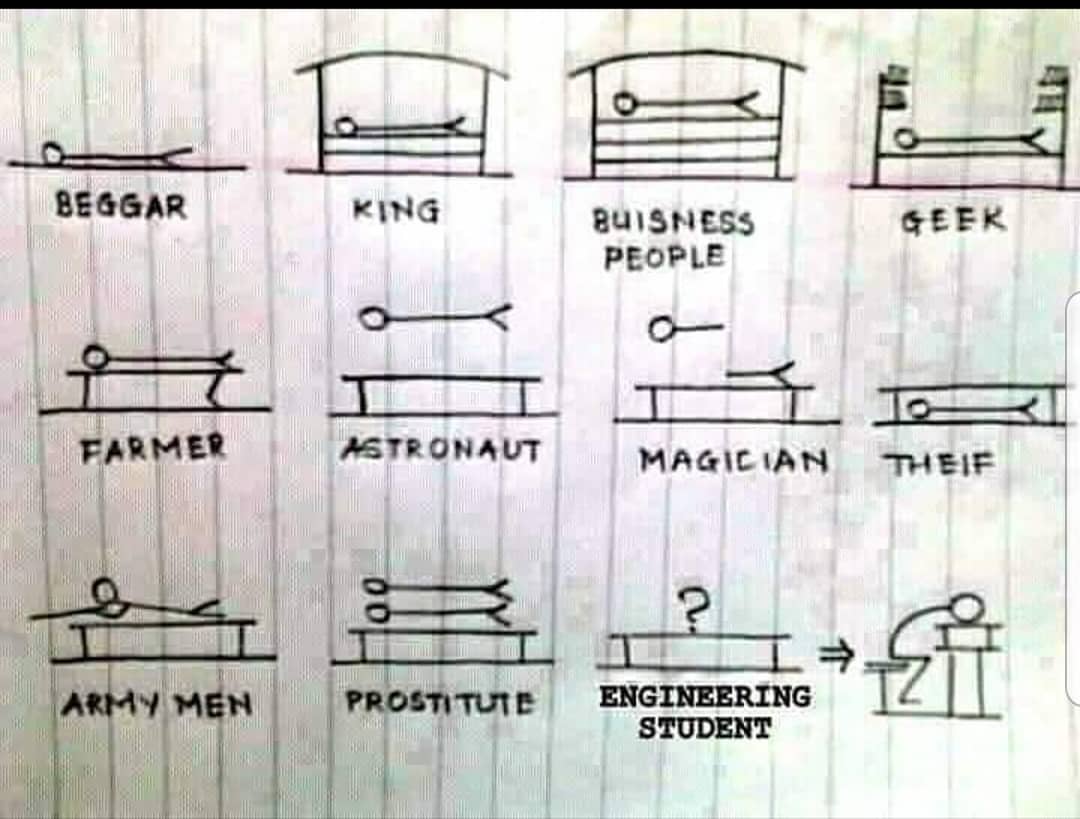 BEGGAR
KING
BUISNESS
PEOPLE
GEEK
FARMER
ASTRONAUT
MAGICIAN
THEIF
ARMY MEN
PROSTITUTE
?
ENGINEERING
STUDENT